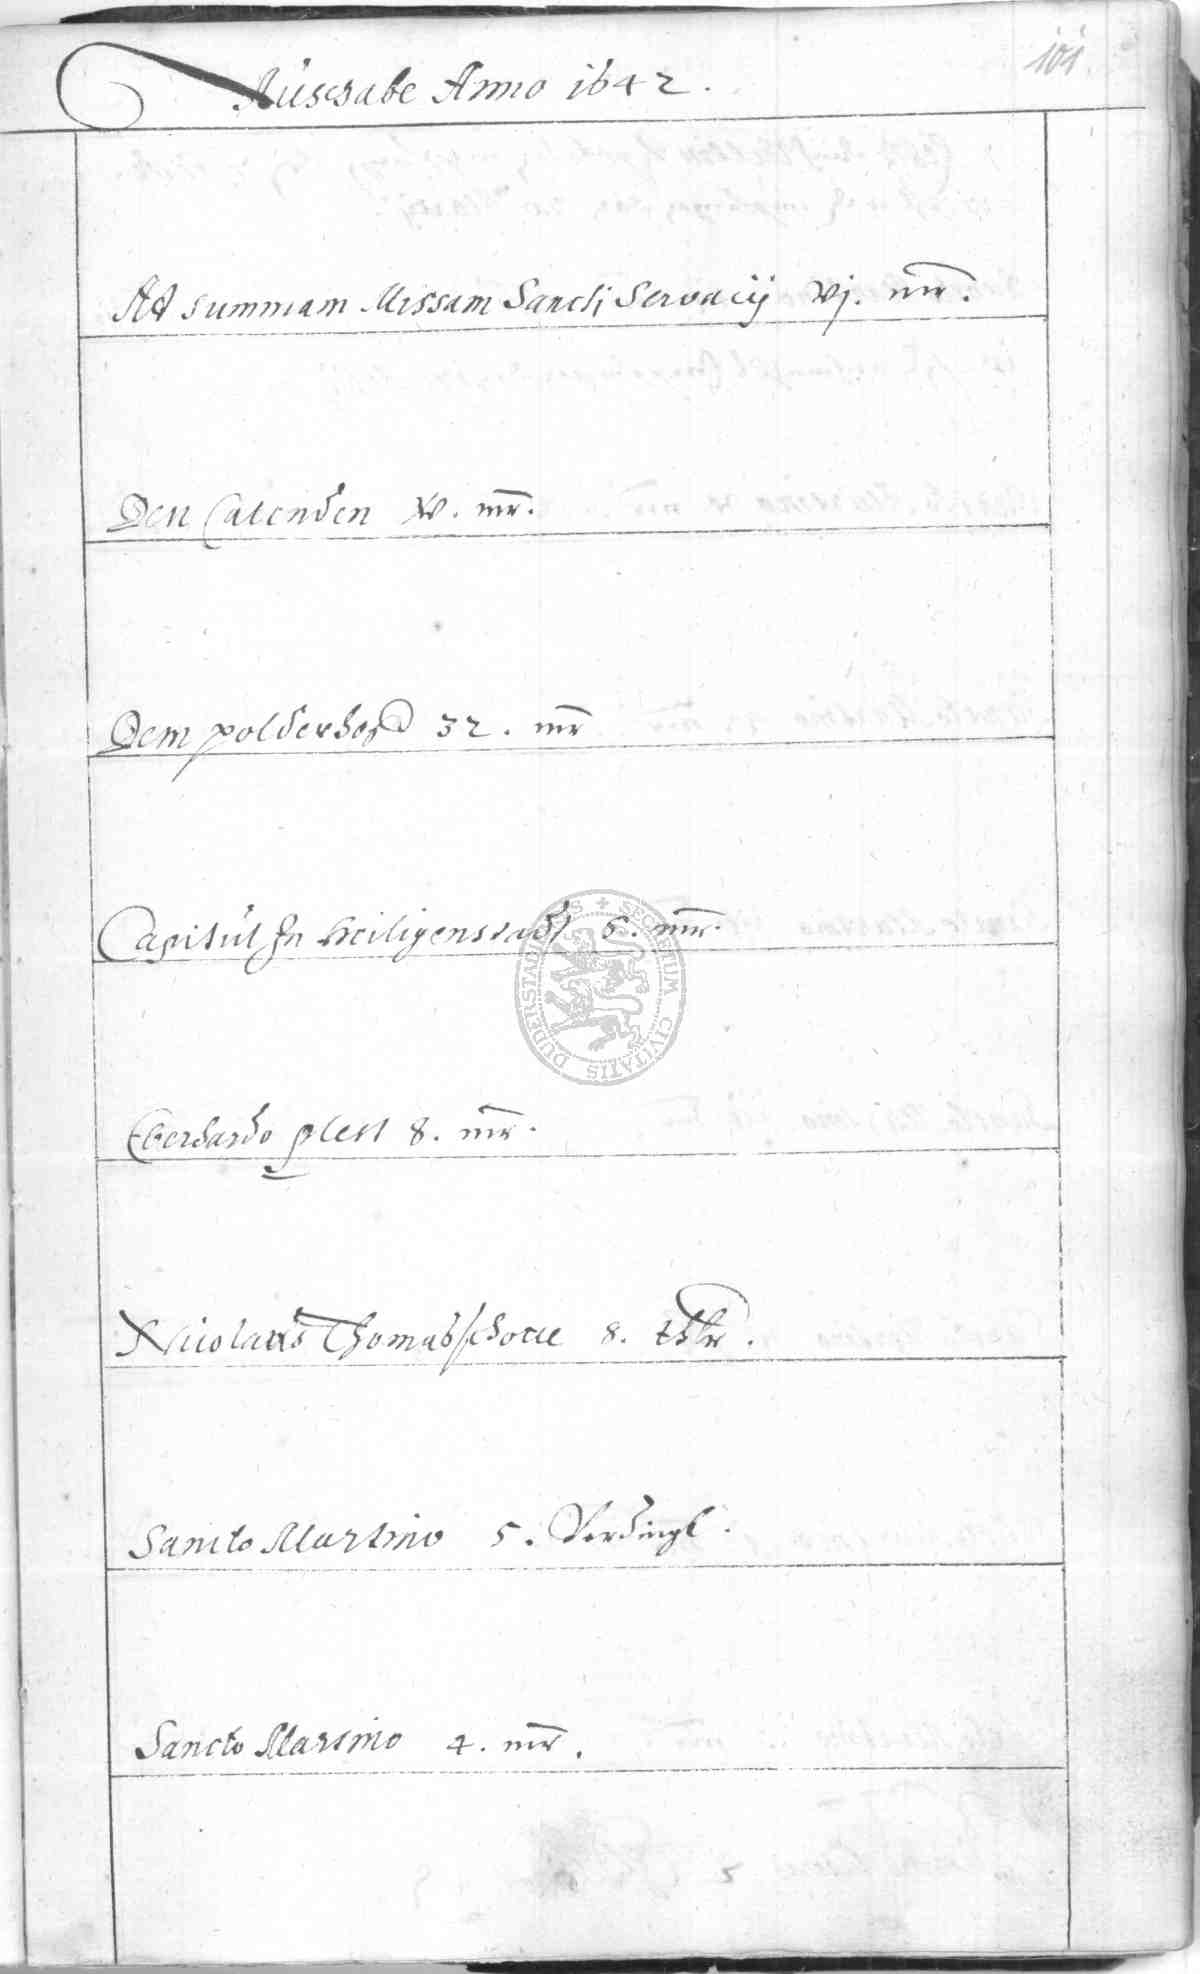 101
Ausgabe Anno 1642.
Ad summam Missam Sancti Servacij vj. mr.
Den Calenden xv. mr.
Dem 32. mr
Capitul In Heiligenstadt 6. mr.
Eberhardo plest 8. mr.
Nicolaus 8. thlr.
Sancto Martino 5. Verdingl.
Sancto Martino 4. mr.
SECRETUM CIVITATIS DUDERSTADENSIS